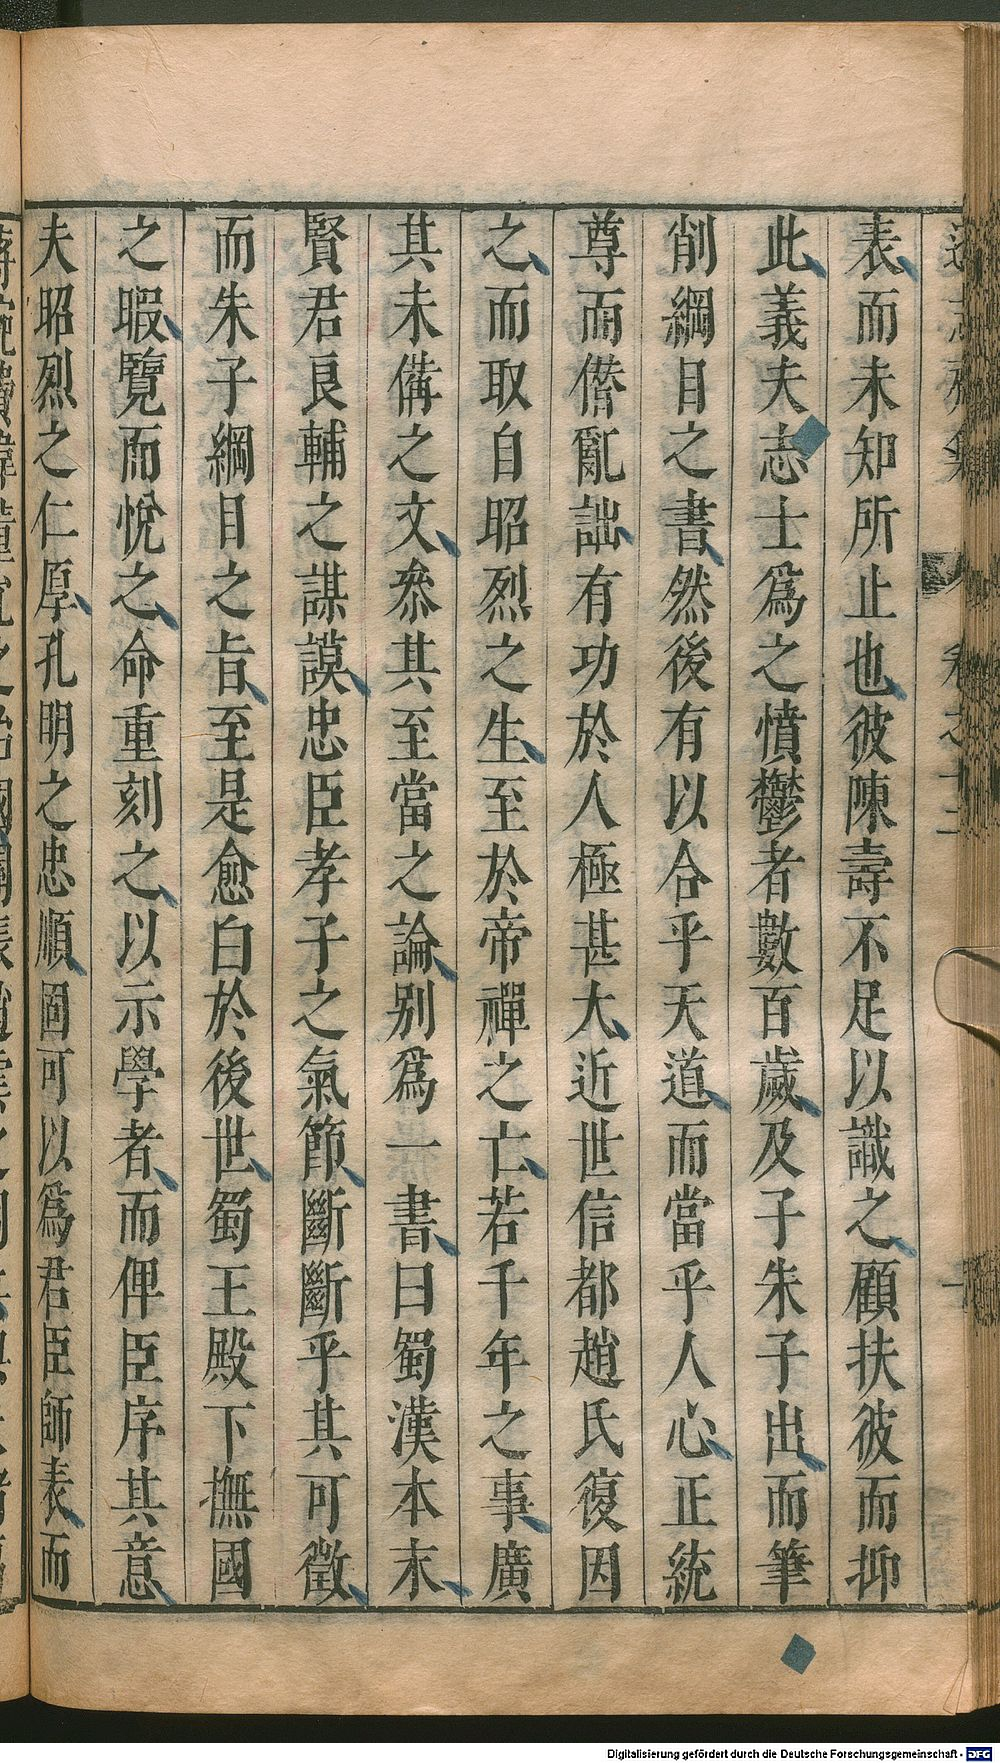 表而未知所止也彼陳壽不足以識之顧扶彼而抑
此義夫志士爲之憤鬱者數百歲及子朱子出而筆
削綱目之書然後有以合乎天道而當乎人心正統
尊而僭亂詘有功於人極甚大近世信都趙氏復因
之而取自昭烈之生至於帝禪之亡若干年之事廣
其未備之文叅其至當之論別爲一書曰蜀漢本末
賢君良輔之謀謨忠臣孝子之氣節斷斷乎其可徵
而朱子綱目之旨至是愈白於後世蜀王殿下撫國
之暇覽而悅之命重刻之以示學者而俾臣序其意
夫昭烈之仁厚孔明之忠順固可以爲君臣師表而
Digitalisierung gefördert durch die Deutsche Forschungsgemeinschaft - DFG